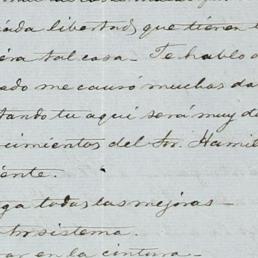 ada libertad, que tienen l
era tal cosa. Te hablo d
ado me causó muchas da
tando tu aqui será muy d
cimientos del Sr. Hamil
iente.
ga todas las mejoras—
sistema.
en la cintura—